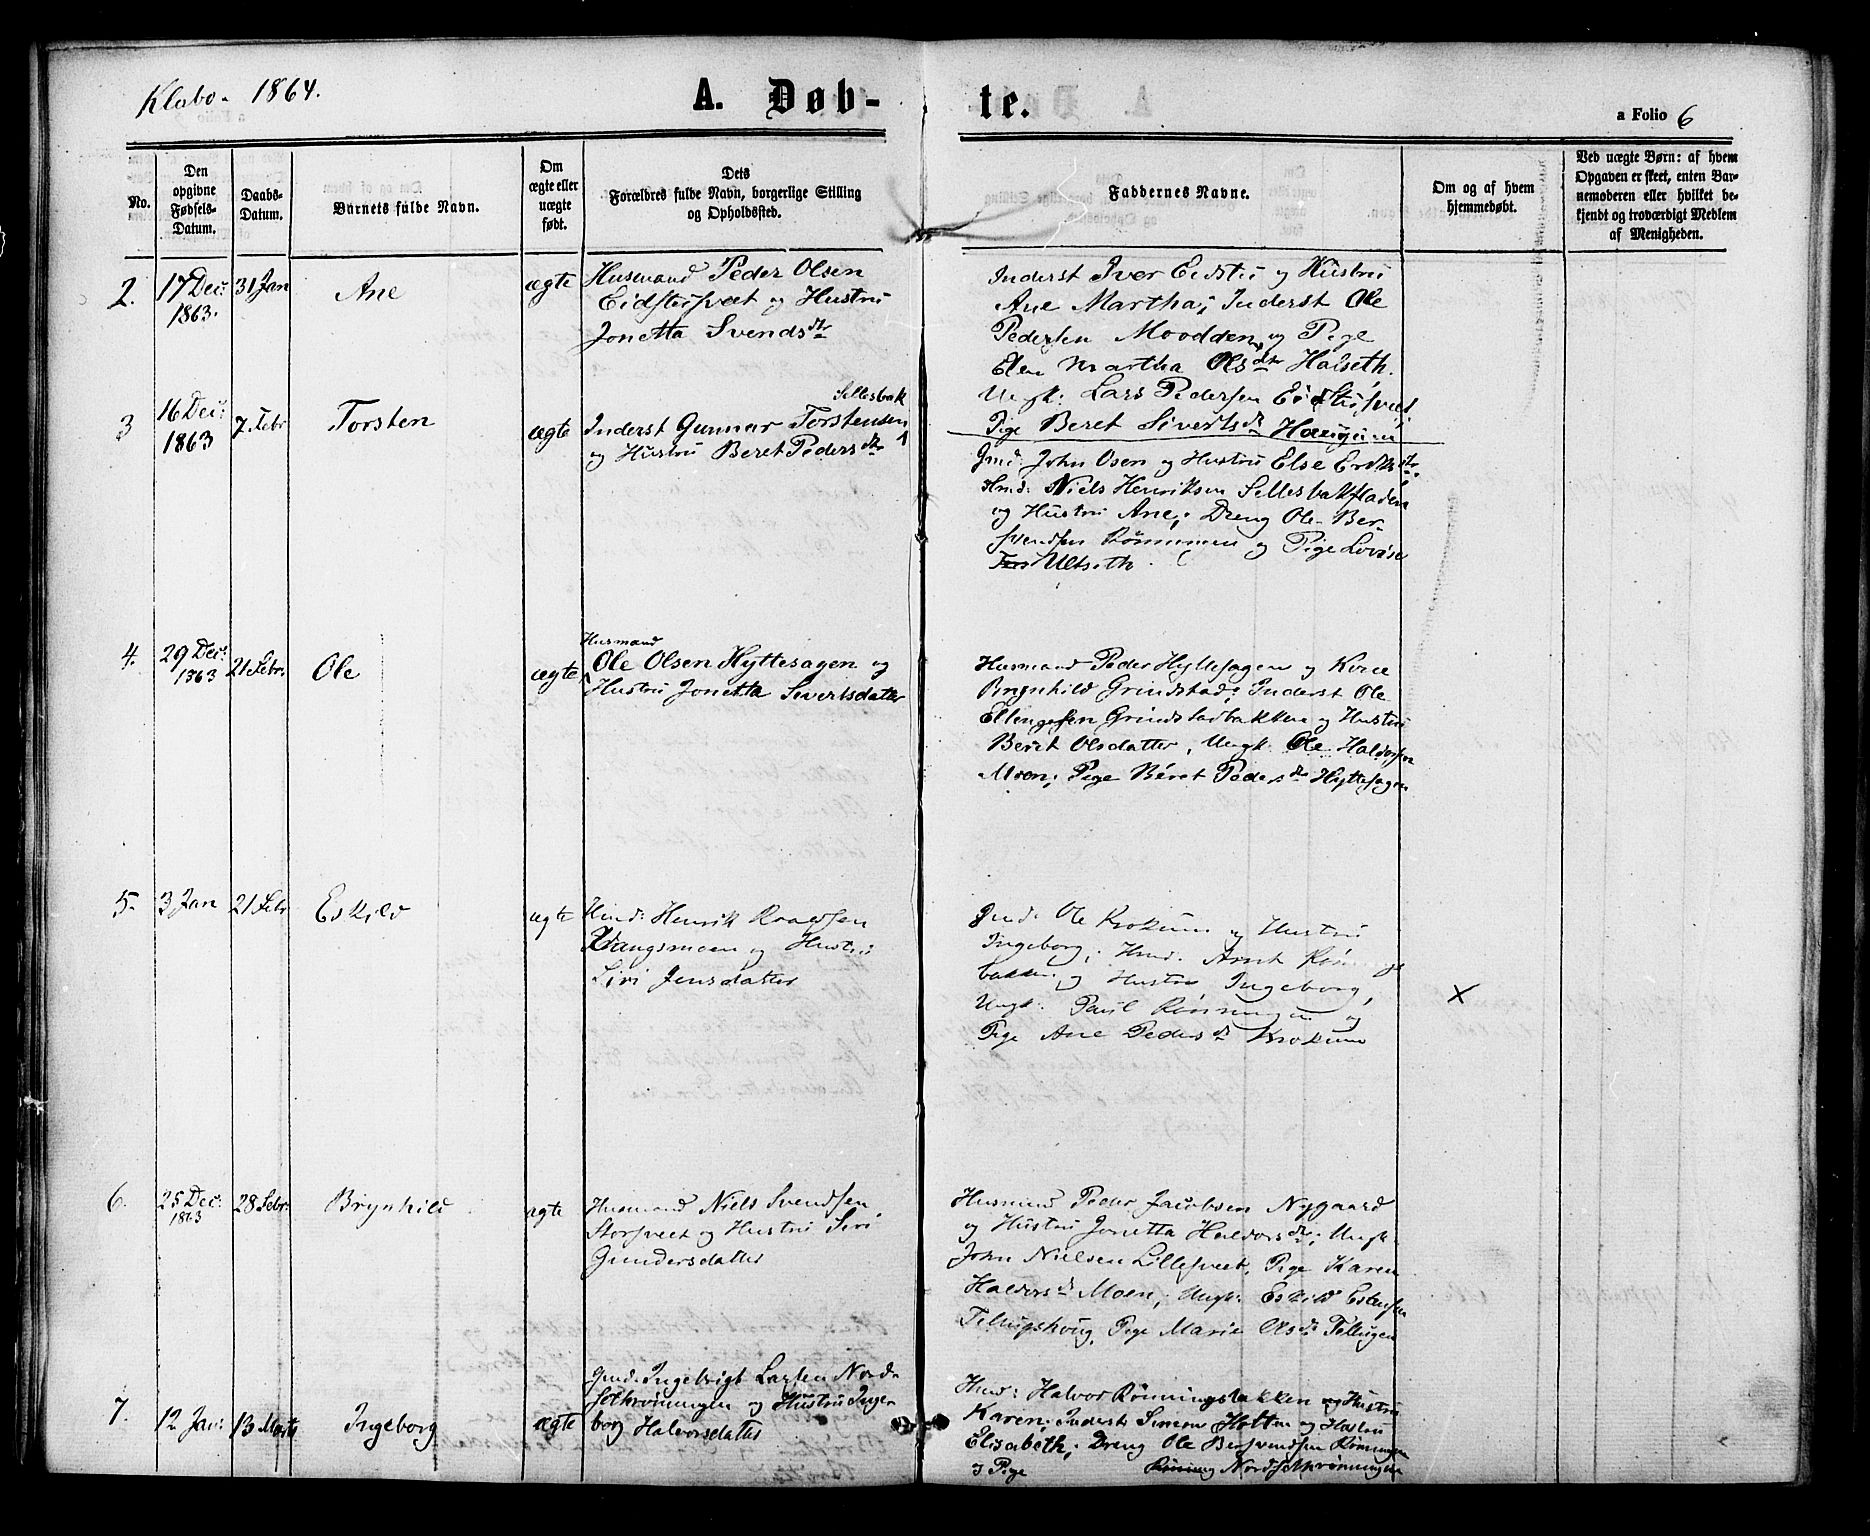 Klæbo 1864.
A. Døb- te.
a Folio 6
No.
Den opgivne Fødsels-Datum.
Daabs-Datum.
Barnets fulde Navn.
Om ægte eller uægte født.
Dets Forældres fulde Navn, borgerlige Stilling og Opholdssted.
Faddernes Navne.
Om og af hvem hjemmedøbt.
Ved uægte Børn: af hvem
Opgaven er skeet, enten Bar-
nemoderen eller hvilket be-
kjendt og troværdigt Medlem
af Menigheden.
2. 17 Dec: 1863. 31 Jan Ane ægte
Husmand Peder Olsen
Eidstusveet og Hustru
Jonetta Svendsdtr
Inderst Iver Eidstu og Hustru
Ane Martha; Inderst Ole
Pedersen Moodden, og Pige
Elen Martha Olsdtr Halseth.
Ungk: Lars Pedersen Eidstusveet,
Pige Beret Sivertsdr Haugum
3 16 Dec: 1863 7 Febr Torsten ægte
Sellesbak
Inderst Gunnar Torstensen
og Hustru Beret Pedersdtr
Gmd: John Osen og Hustru Else
Hmd: Niels Henriksen Sellesbakfladen
og Hustru Ane; Dreng Ole Ber-
svendsen Rønningen og Pige Lovise
Ulseth.
4. 29 Dec: 1863 21 Febr. Ole ægte
Husmand
Ole Olsen Hyttesagen og
Hustru Jonetta Sivertsdatter
Husmand Peder Hyttesagen og Kone
Brynhild Grindstad; Inderst Ole
Ellingsen Grindstadbakken og Hustru
Berit Olsdatter, Ungk: Ole Haldorsen
Moen; Pige Béret Pedersdr Hyttesagen
5. 3 Jan 21 Febr Eskild ægte
Hmd: Henrik
Vangsmoen og Hustru
Siri Jensdatter
Gmd: Ole Krokum og Hustru
Ingeborg; Hmd: Arnt
bakken og Hustru Ingeborg,
Ungk: Paul Rønningen og
Pige Ane Pedersdr Krokum
X
6. 25 Dec: 1863 28 Febr. Brynhild ægte
Husmand Niels Svendsen
Storsveet og Hustru Siri
Gundersdatter
Husmand Peder Jacobsen Nygaard
og Hustru Jonetta Haldorsdtr; Ungk:
John Nielsen Lillesveet, Pige Karen
Haldorsdr Moen; Ungk: Eskild Estensen
Tellugshoug, Pige Marie Olsdr Tellugen
7. 12 Jan: 13 Marts Ingeborg ægte
Gmd: Ingebrigt Larsen Nord-
sethrønningen og Hustru Inge-
borg Halvorsdatter
Hmd: Halvor Rønningsbakken og Hustru
Karen; Inderst Simon Hotten og Hustru
Elisabeth; Dreng Ole Bersvendsen Rønningen
Pige Nordsethrønningen